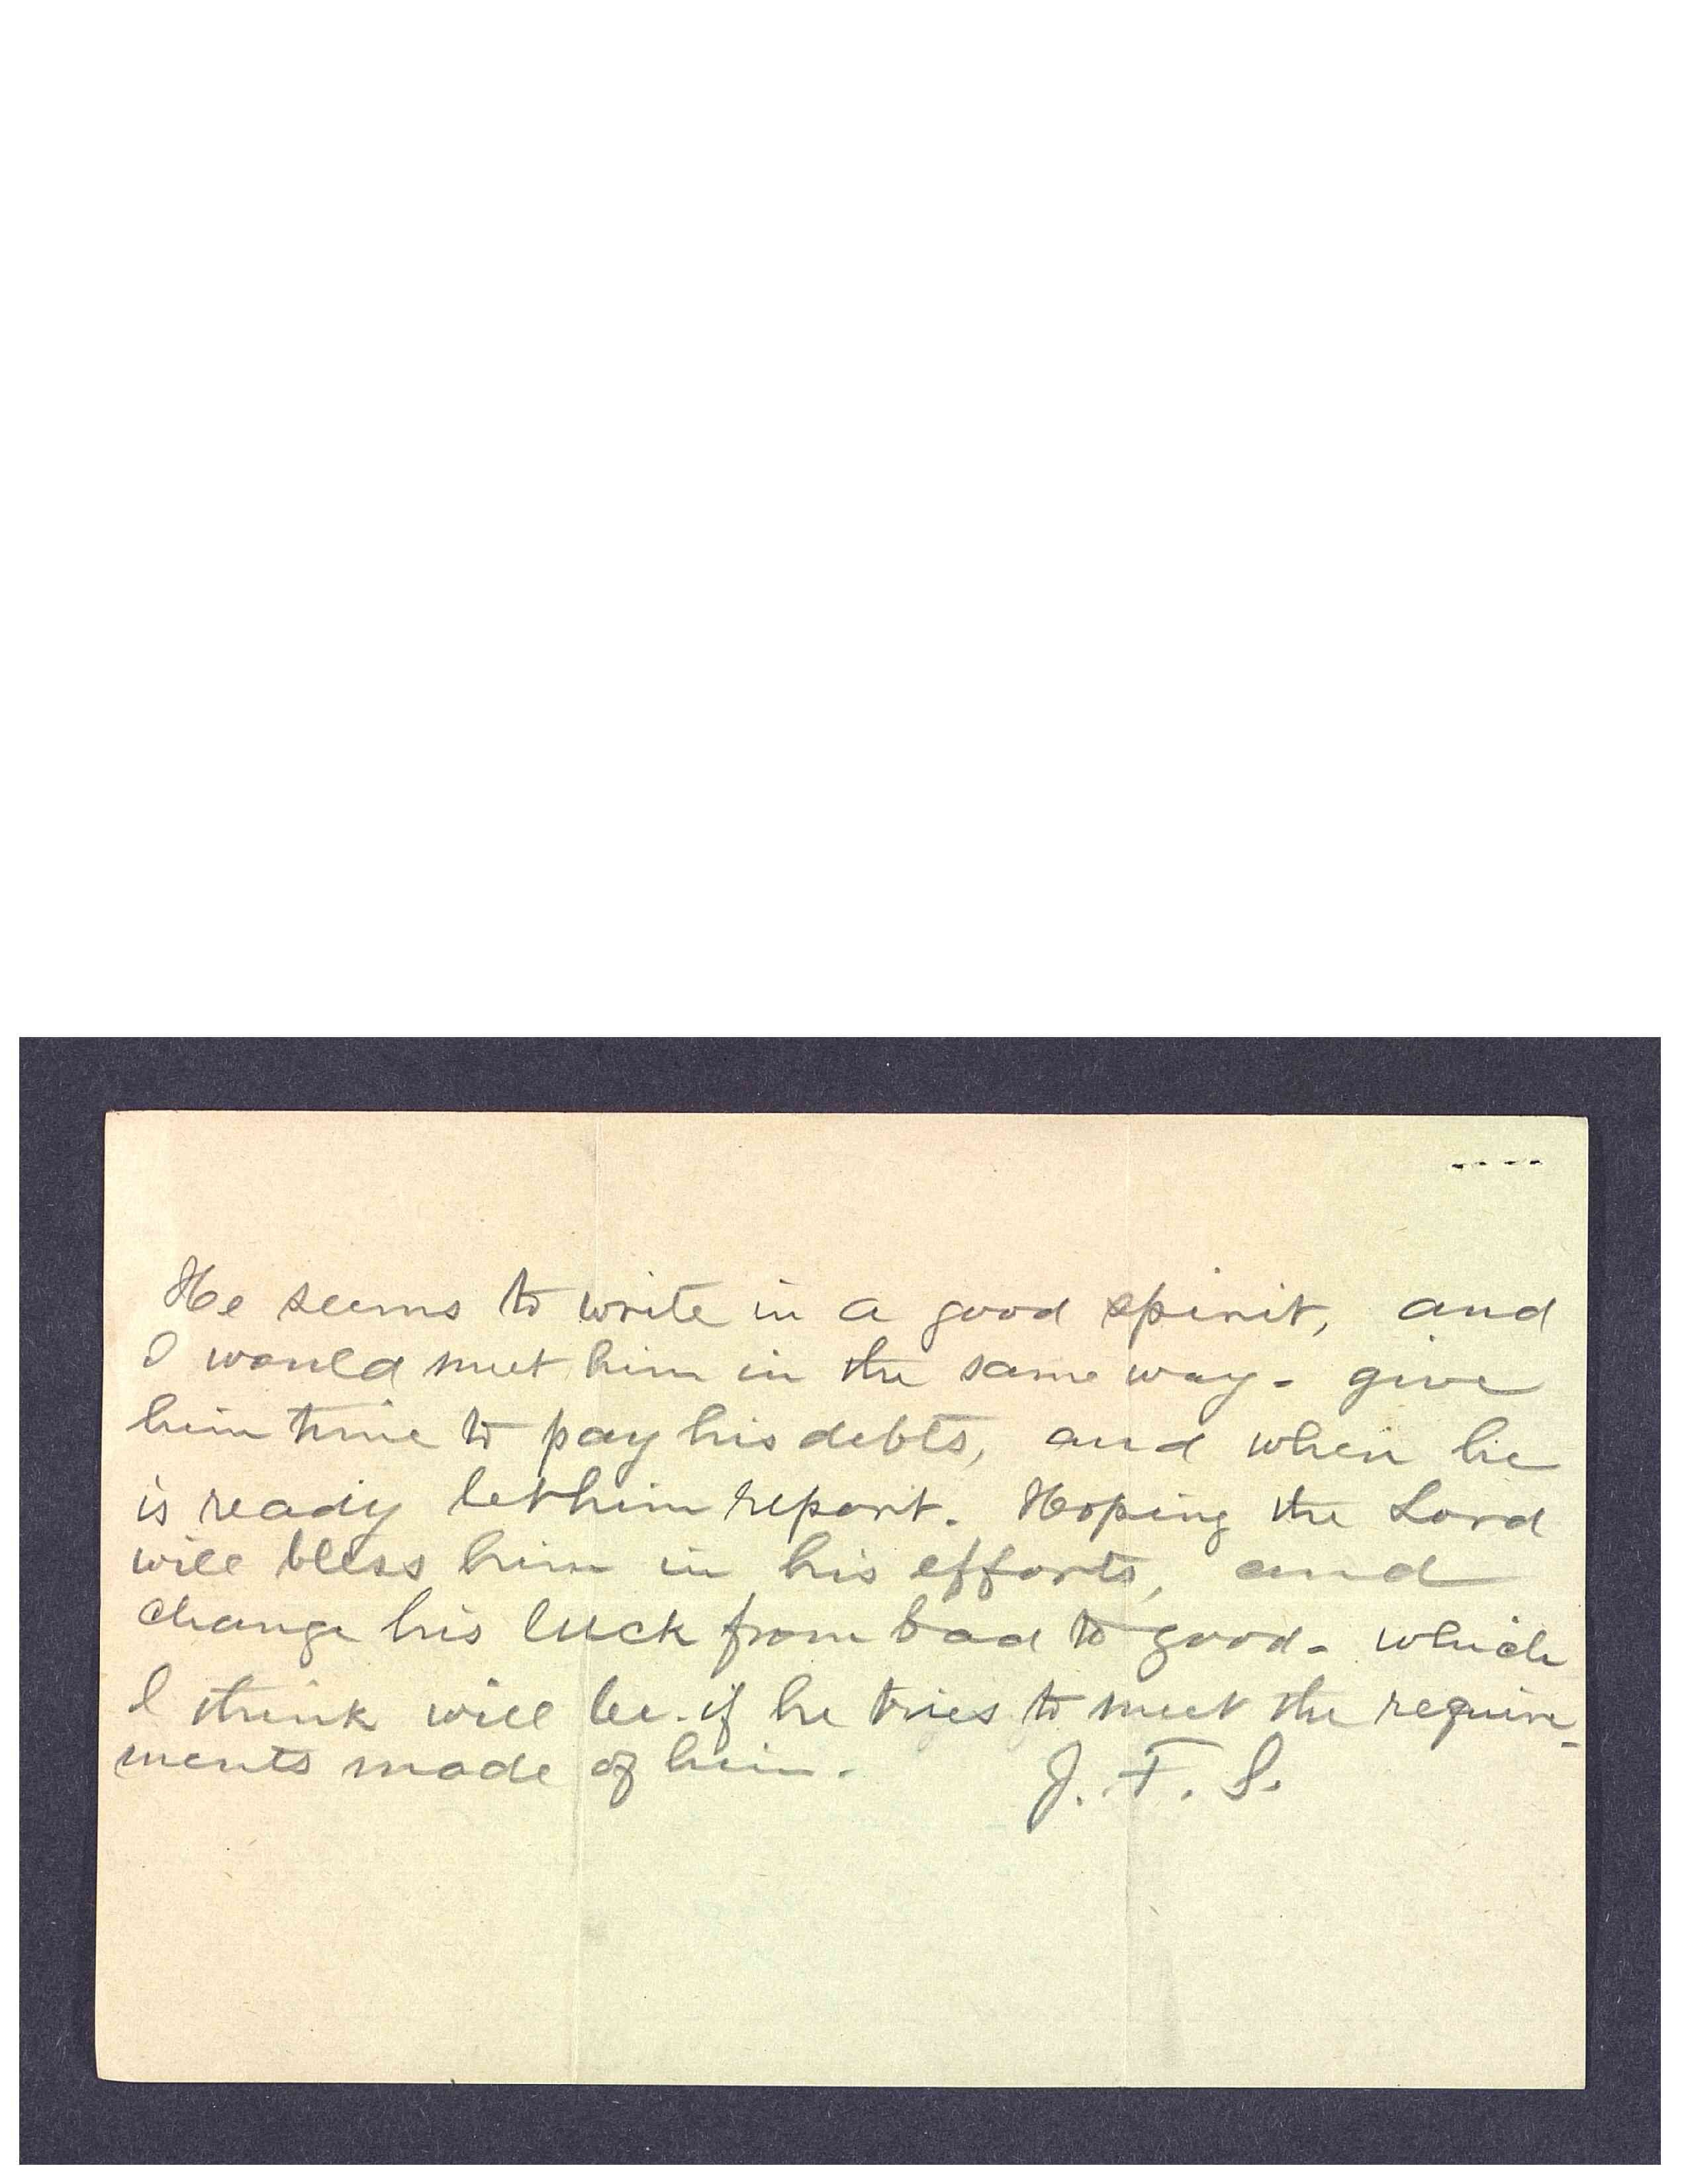 He seems to write in a good spirit, and
I would meet him in the same way - give
him time to pay his debts, and when he
is ready let him report. Hoping the Lord
will bless him in his efforts, and
change his luck from bad to good - which
I think will be if he tries to meet the require-
ments made of him. J. F. S.